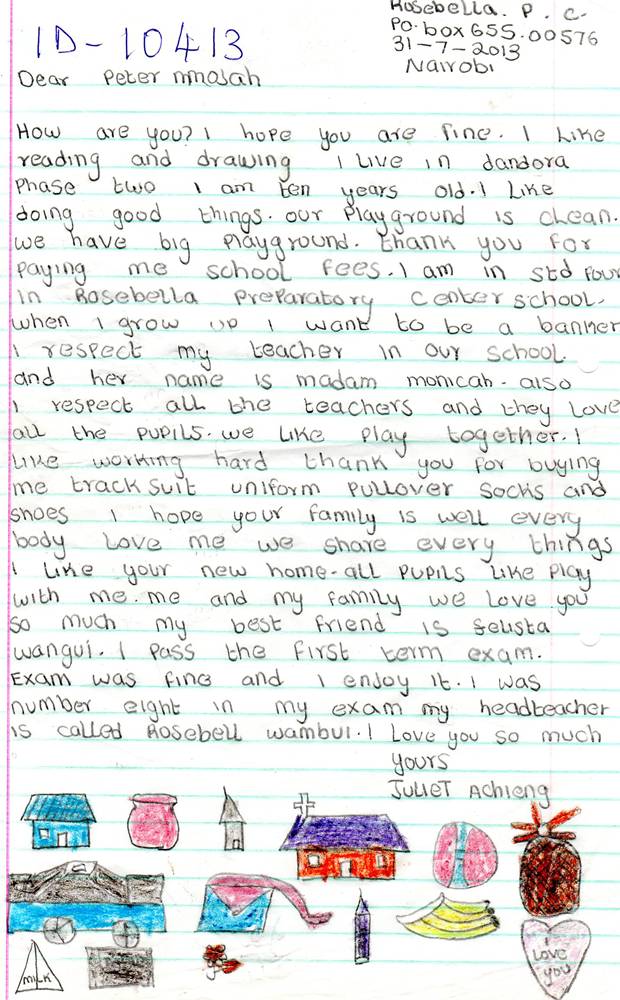 Rosebella. P. C.
ID-10413
P.O. box 655.00576
31-7-2013
Nairobi
Dear Peter mmosah
How are you? I hope you are fine. I Like
reading and drawing I Live in dandora
Phase two I am ten years old. I Like
doing good things. our Playground is clean.
we have big Playground. thank you for
paying me school fees. I am in std four
in Rosebella Preparatory Center school.
when I grow up I want to be a banker
I respect my teacher in our school.
and her name is madam monicah. also
I respect all the teachers and they Love
all the pupils. we Like Play together. I
Like working hard thank you for buying
me track suit uniform Pullover socks and
shoes I hope your family is well every
body Love me we share every things
I Like your new home. all pupils Like Play
with me. me and my family we Love you
so much my best friend is felista
wangui. I pass the first term exam.
Exam was fine and I enjoy it. I was
number eight in my exam my headteacher
is called Rosebell wambui. I Love you so much
yours
Juliet Achieng
MiLK
I
Love
you